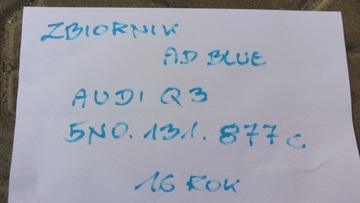 ZBIORNIK
AD BLUE
AUDI Q3
5N0.131.877c
16 ROK